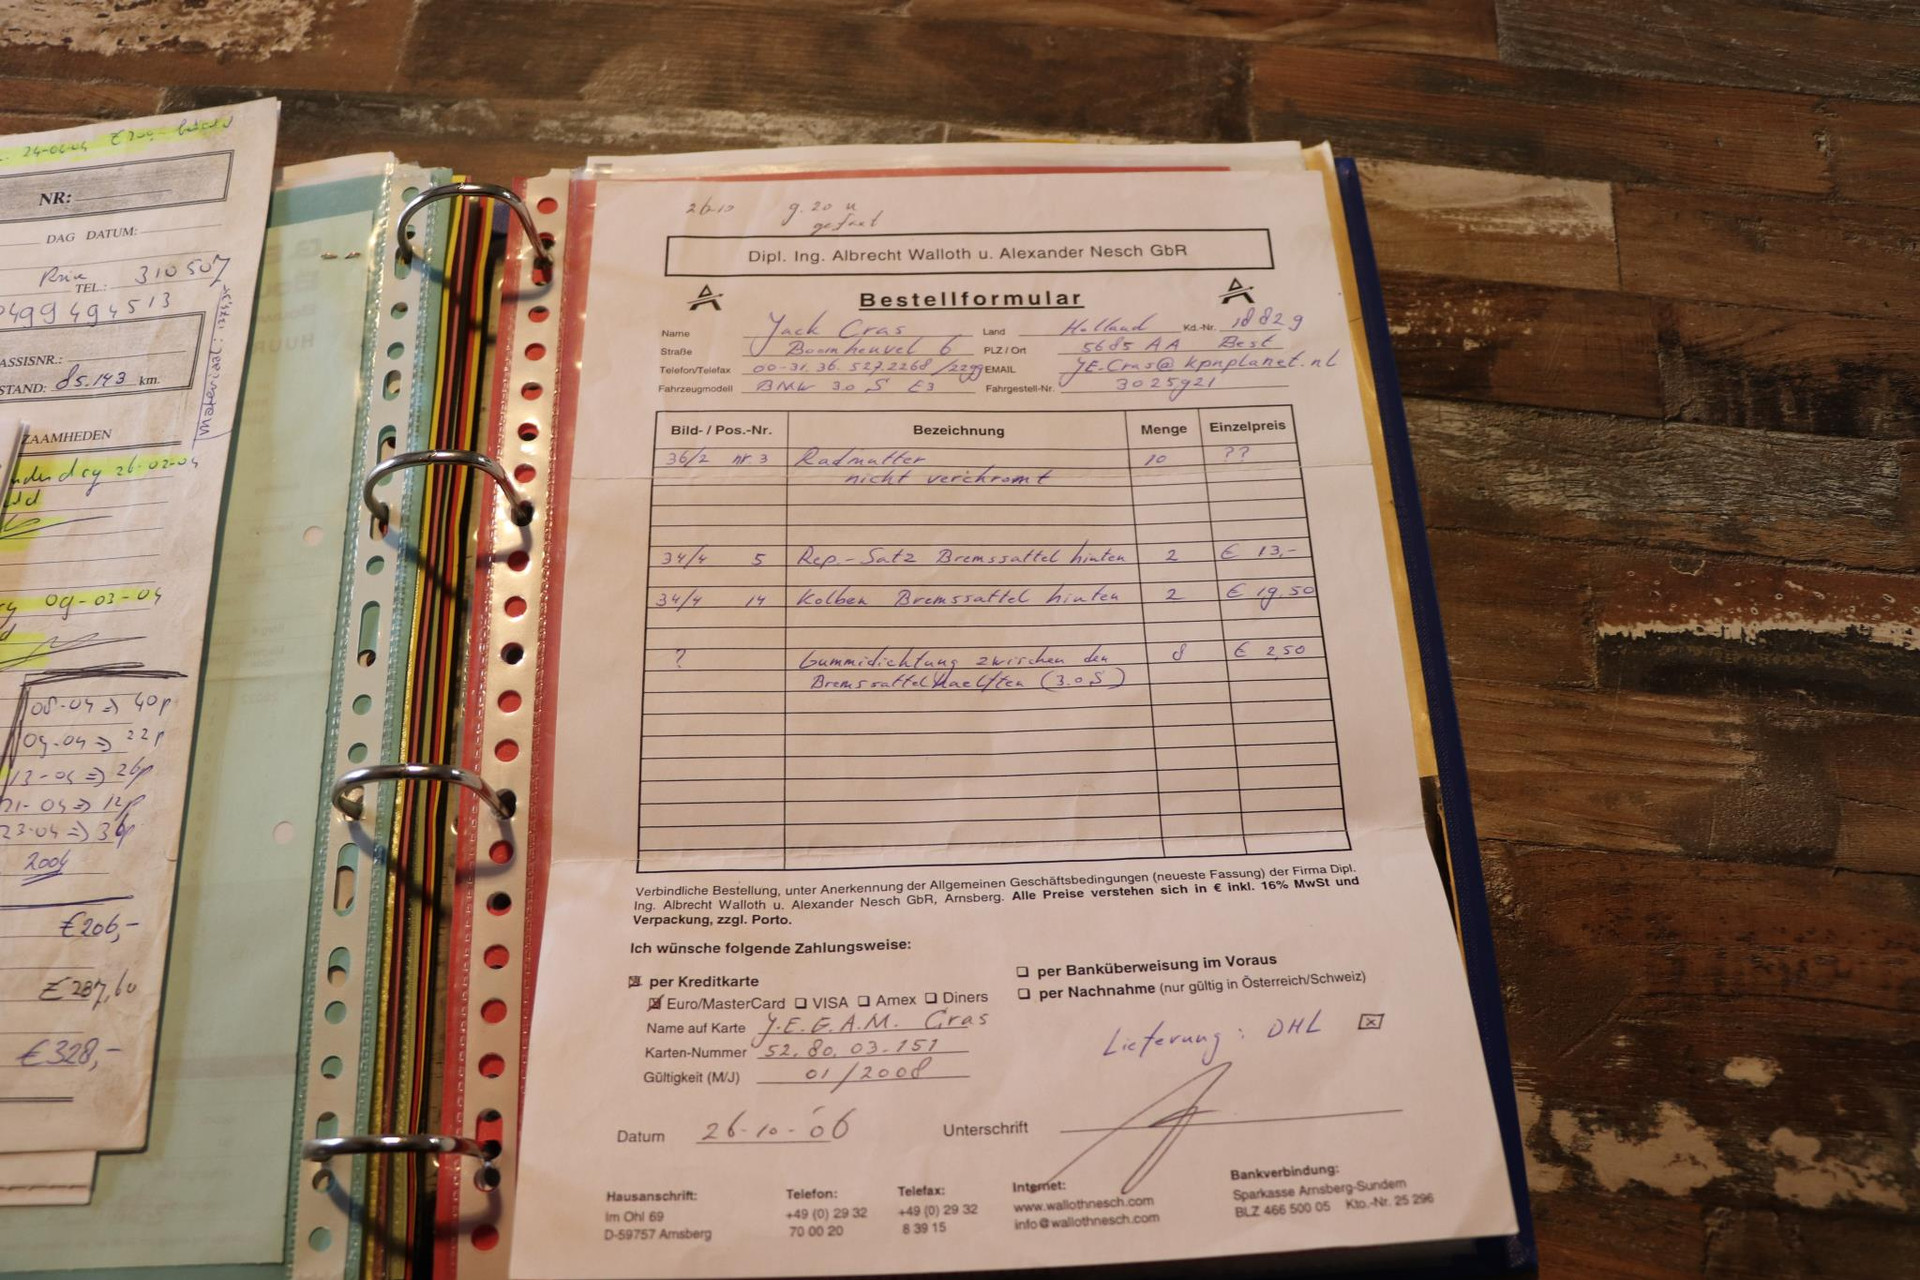 24-02-04
NR:
DAG DATUM:
Prive TEL.: 310507
0499494513
ASSISNR.:
STAND: 85.143 km.
Materiaal:
ZAAMHEDEN
26-02-04
09-03-04
08-04 => 40p
09-04 => 22p
13-04 => 26p
21-04 => 12p
23-04 => 36p
2004
€206,-
€287,60
€328,-
26-10 9.20 u
gefaxt
Dipl. Ing. Albrecht Walloth u. Alexander Nesch GbR
Bestellformular
Name Jack Cras Land Holland Kd.-Nr. 18829
Straße Boomheuvel 6 PLZ / Ort 5685 AA Best
Telefon/Telefax 00-31.36.527.2268 /2299 EMAIL JE.Cras@kpnplanet.nl
Fahrzeugmodell BMW 3.0 S E3 Fahrgestell-Nr. 3025921
Bild- / Pos.-Nr. Bezeichnung Menge Einzelpreis
36/2 nr. 3 Radmutter 10 ??
nicht verchromt
34/4 5 Rep.-Satz Bremssattel hinten 2 € 13,-
34/4 14 Kolben Bremssattel hinten 2 € 19,50
? Gummidichtung zwischen den 8 € 2,50
Bremssattelhaelften (3.0S)
Verbindliche Bestellung, unter Anerkennung der Allgemeinen Geschäftsbedingungen (neueste Fassung) der Firma Dipl.
Ing. Albrecht Walloth u. Alexander Nesch GbR, Arnsberg. Alle Preise verstehen sich in € inkl. 16% MwSt und
Verpackung, zzgl. Porto.
Ich wünsche folgende Zahlungsweise:
☒ per Kreditkarte ☐ per Banküberweisung im Voraus
☒ Euro/MasterCard ☐ VISA ☐ Amex ☐ Diners ☐ per Nachnahme (nur gültig in Österreich/Schweiz)
Name auf Karte J.E.G.A.M. Cras
Lieferung: DHL ☒
Karten-Nummer 52.80.03.151
Gültigkeit (M/J) 01/2008
Datum 26-10-06 Unterschrift
Hausanschrift: Telefon: Telefax: Internet: Bankverbindung:
Im Ohl 69 +49 (0) 29 32 +49 (0) 29 32 www.wallothnesch.com Sparkasse Arnsberg-Sundern
D-59757 Arnsberg 70 00 20 8 39 15 info@wallothnesch.com BLZ 466 500 05 Kto.-Nr. 25 296